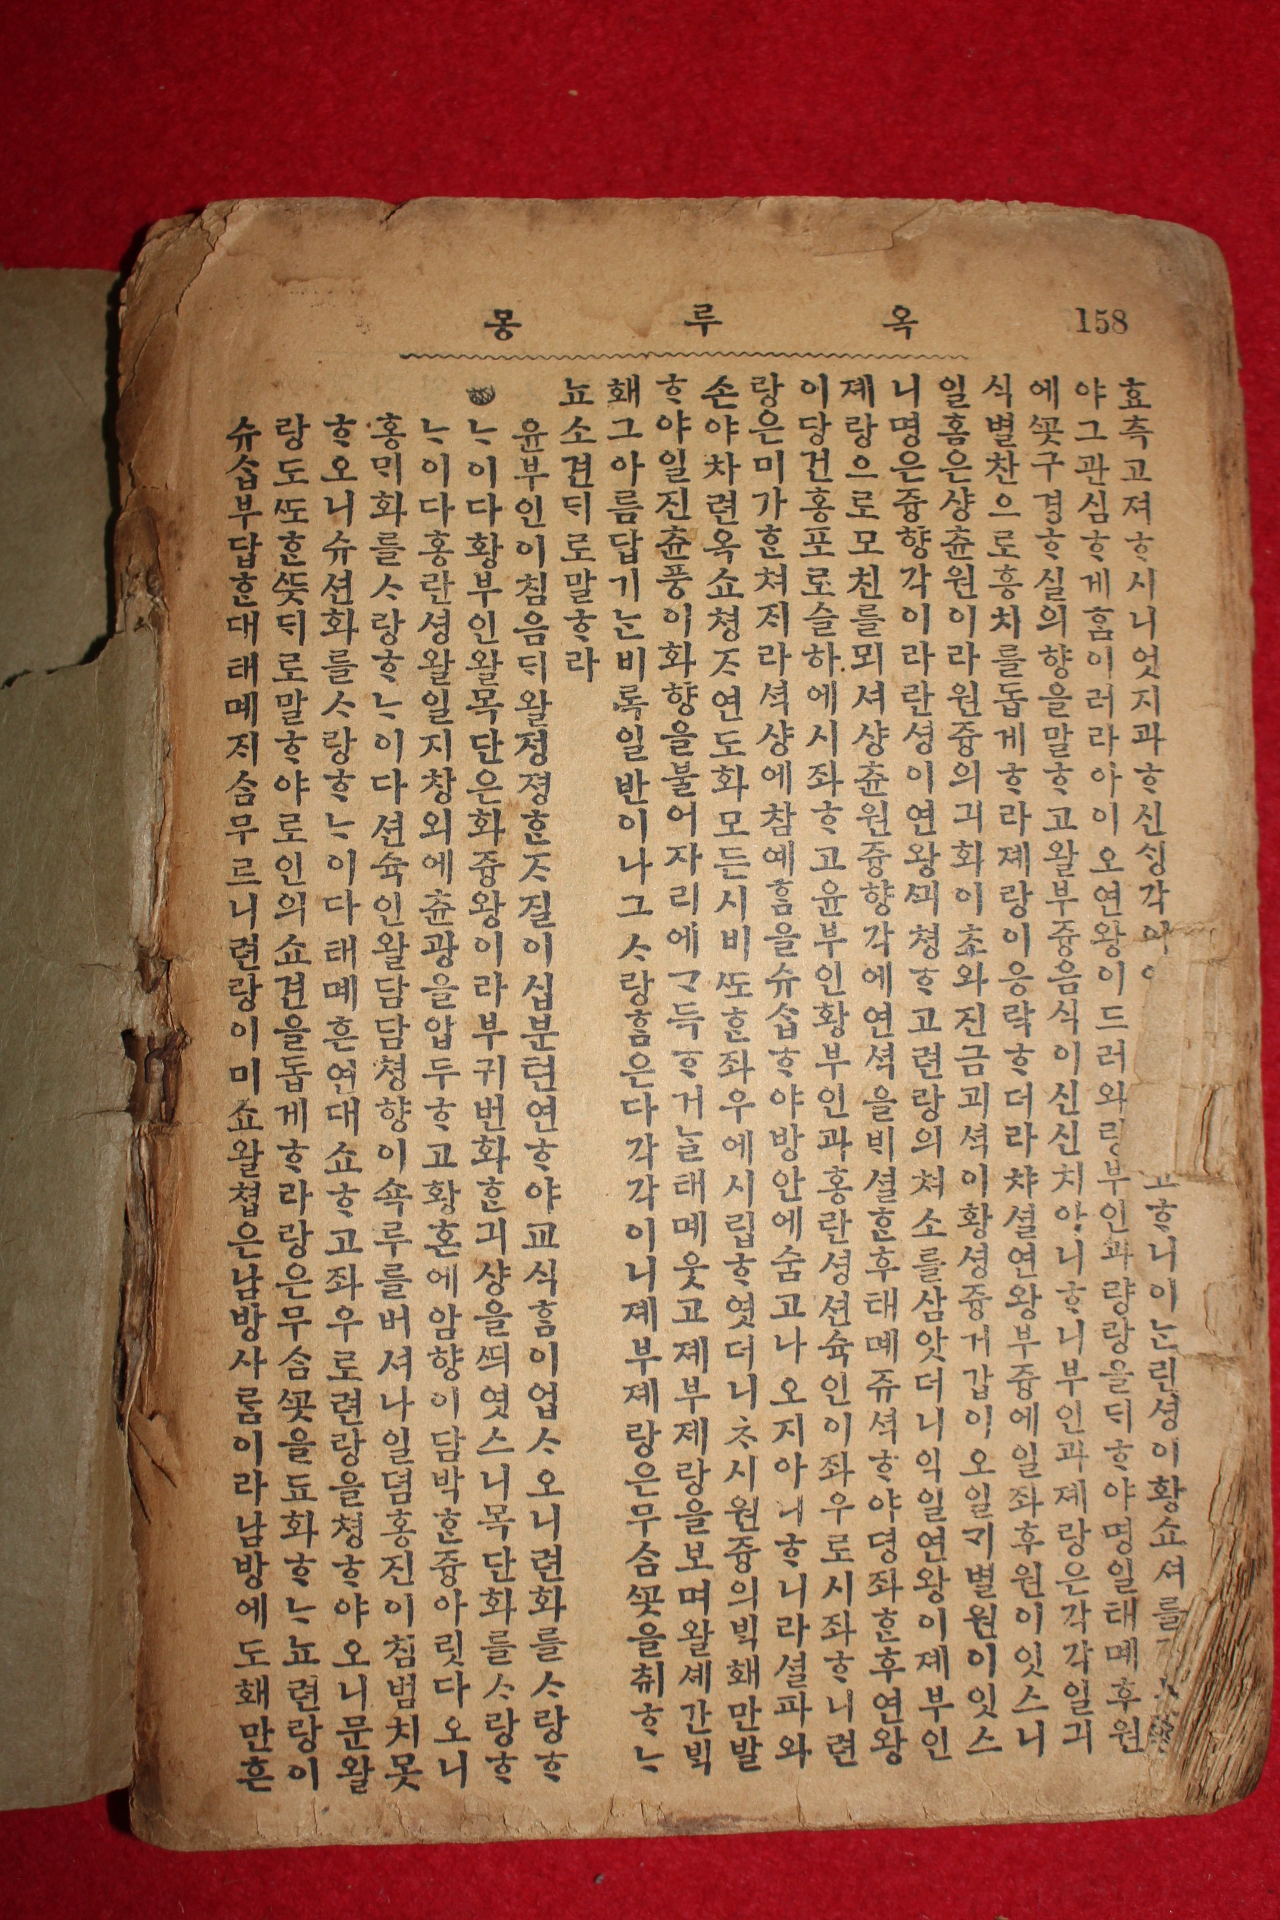 158 옥루몽
효측고져ᄒᆞ시니엇지과ᄒᆞ신ᄉᆡᆼ각이 고ᄒᆞ니이ᄂᆞᆫ린셩이황쇼셔를
야그관심ᄒᆞ게ᄒᆞᆷ이러라아이오연왕이드러와 부인과량랑을ᄃᆡᄒᆞ야명일태몌후원
에ᄭᅩᆺ구경ᄒᆞ실의향을말ᄒᆞ고왈부즁음식이신신치아니ᄒᆞ니부인과졔랑은각각일긔
식별찬으로흥치를돕게ᄒᆞ라졔랑이응락ᄒᆞ더라챠셜연왕부즁에일좌후원이잇스니
일홈은샹츈원이라원즁의긔화이초와진금괴셕이황셩즁거갑이오일ᄀᆡ별원이잇스
니명은즁향각이라란셩이연왕ᄭᅴ쳥ᄒᆞ고련랑의쳐소를삼앗더니익일연왕이졔부인
졔랑으로모친를뫼셔샹츈원즁향각에연셕을ᄇᆡ셜ᄒᆞᆫ후태몌쥬셕ᄒᆞ야뎡좌ᄒᆞᆫ후연왕
이당건홍포로슬하에시좌ᄒᆞ고윤부인황부인과홍란셩션슉인이좌우로시좌ᄒᆞ니련
랑은미가ᄒᆞᆫ쳐ᄌᆡ라셕샹에참예ᄒᆞᆷ을슈습ᄒᆞ야방안에숨고나오지아니ᄒᆞ니라셜파와
손야차련옥쇼쳥ᄌᆞ연도화모든시비ᄯᅩᄒᆞᆫ좌우에시립ᄒᆞ엿더니ᄎᆞ시원즁의ᄇᆡᆨ홰만발
ᄒᆞ야일진츈풍이화향을불어자리에ᄀᆞ득ᄒᆞ거ᄂᆞᆯ태몌웃고졔부졔랑을보며왈셰간ᄇᆡᆨ
홰그아름답기ᄂᆞᆫ비록일반이나그ᄉᆞ랑ᄒᆞᆷ은다각각이니졔부졔랑은무ᄉᆞᆷᄭᅩᆺ을취ᄒᆞᄂᆞ
뇨소견ᄃᆡ로말ᄒᆞ라
윤부인이침음ᄃᆡ왈졍졍ᄒᆞᆫᄌᆞ질이십분텬연ᄒᆞ야교식ᄒᆞᆷ이업ᄉᆞ오니련화를ᄉᆞ랑ᄒᆞ
ᄂᆞ이다황부인왈목단은화즁왕이라부귀번화ᄒᆞᆫ긔샹을ᄯᅴ엿스니목단화를ᄉᆞ랑ᄒᆞ
ᄂᆞ이다홍란셩왈일지창외에츈광을압두ᄒᆞ고황혼에암향이담박ᄒᆞᆫ즁아릿다오니
홍ᄆᆡ화를ᄉᆞ랑ᄒᆞᄂᆞ이다션슉인왈담담쳥향이쇽루를버셔나일뎜홍진이침범치못
ᄒᆞ오니슈션화를ᄉᆞ랑ᄒᆞᄂᆞ이다태몌흔연대쇼ᄒᆞ고좌우로련랑을쳥ᄒᆞ야오니문왈
랑도ᄯᅩᄒᆞᆫᄯᅳᆺᄃᆡ로말ᄒᆞ야로인의쇼견을돕게ᄒᆞ라랑은무ᄉᆞᆷᄭᅩᆺ을됴화ᄒᆞᄂᆞ뇨련랑이
슈습부답ᄒᆞᆫ대태몌ᄌᆡ숨무르니련랑이미쇼왈쳡은남방사ᄅᆞᆷ이라남방에도홰만흔